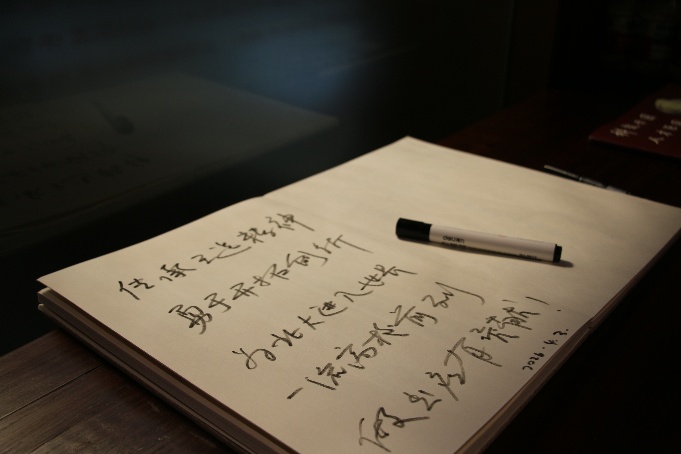 传承王选精神
勇于开拓创新
为北大进入世界
一流高校前列
出应有贡献!
2026.4.3.